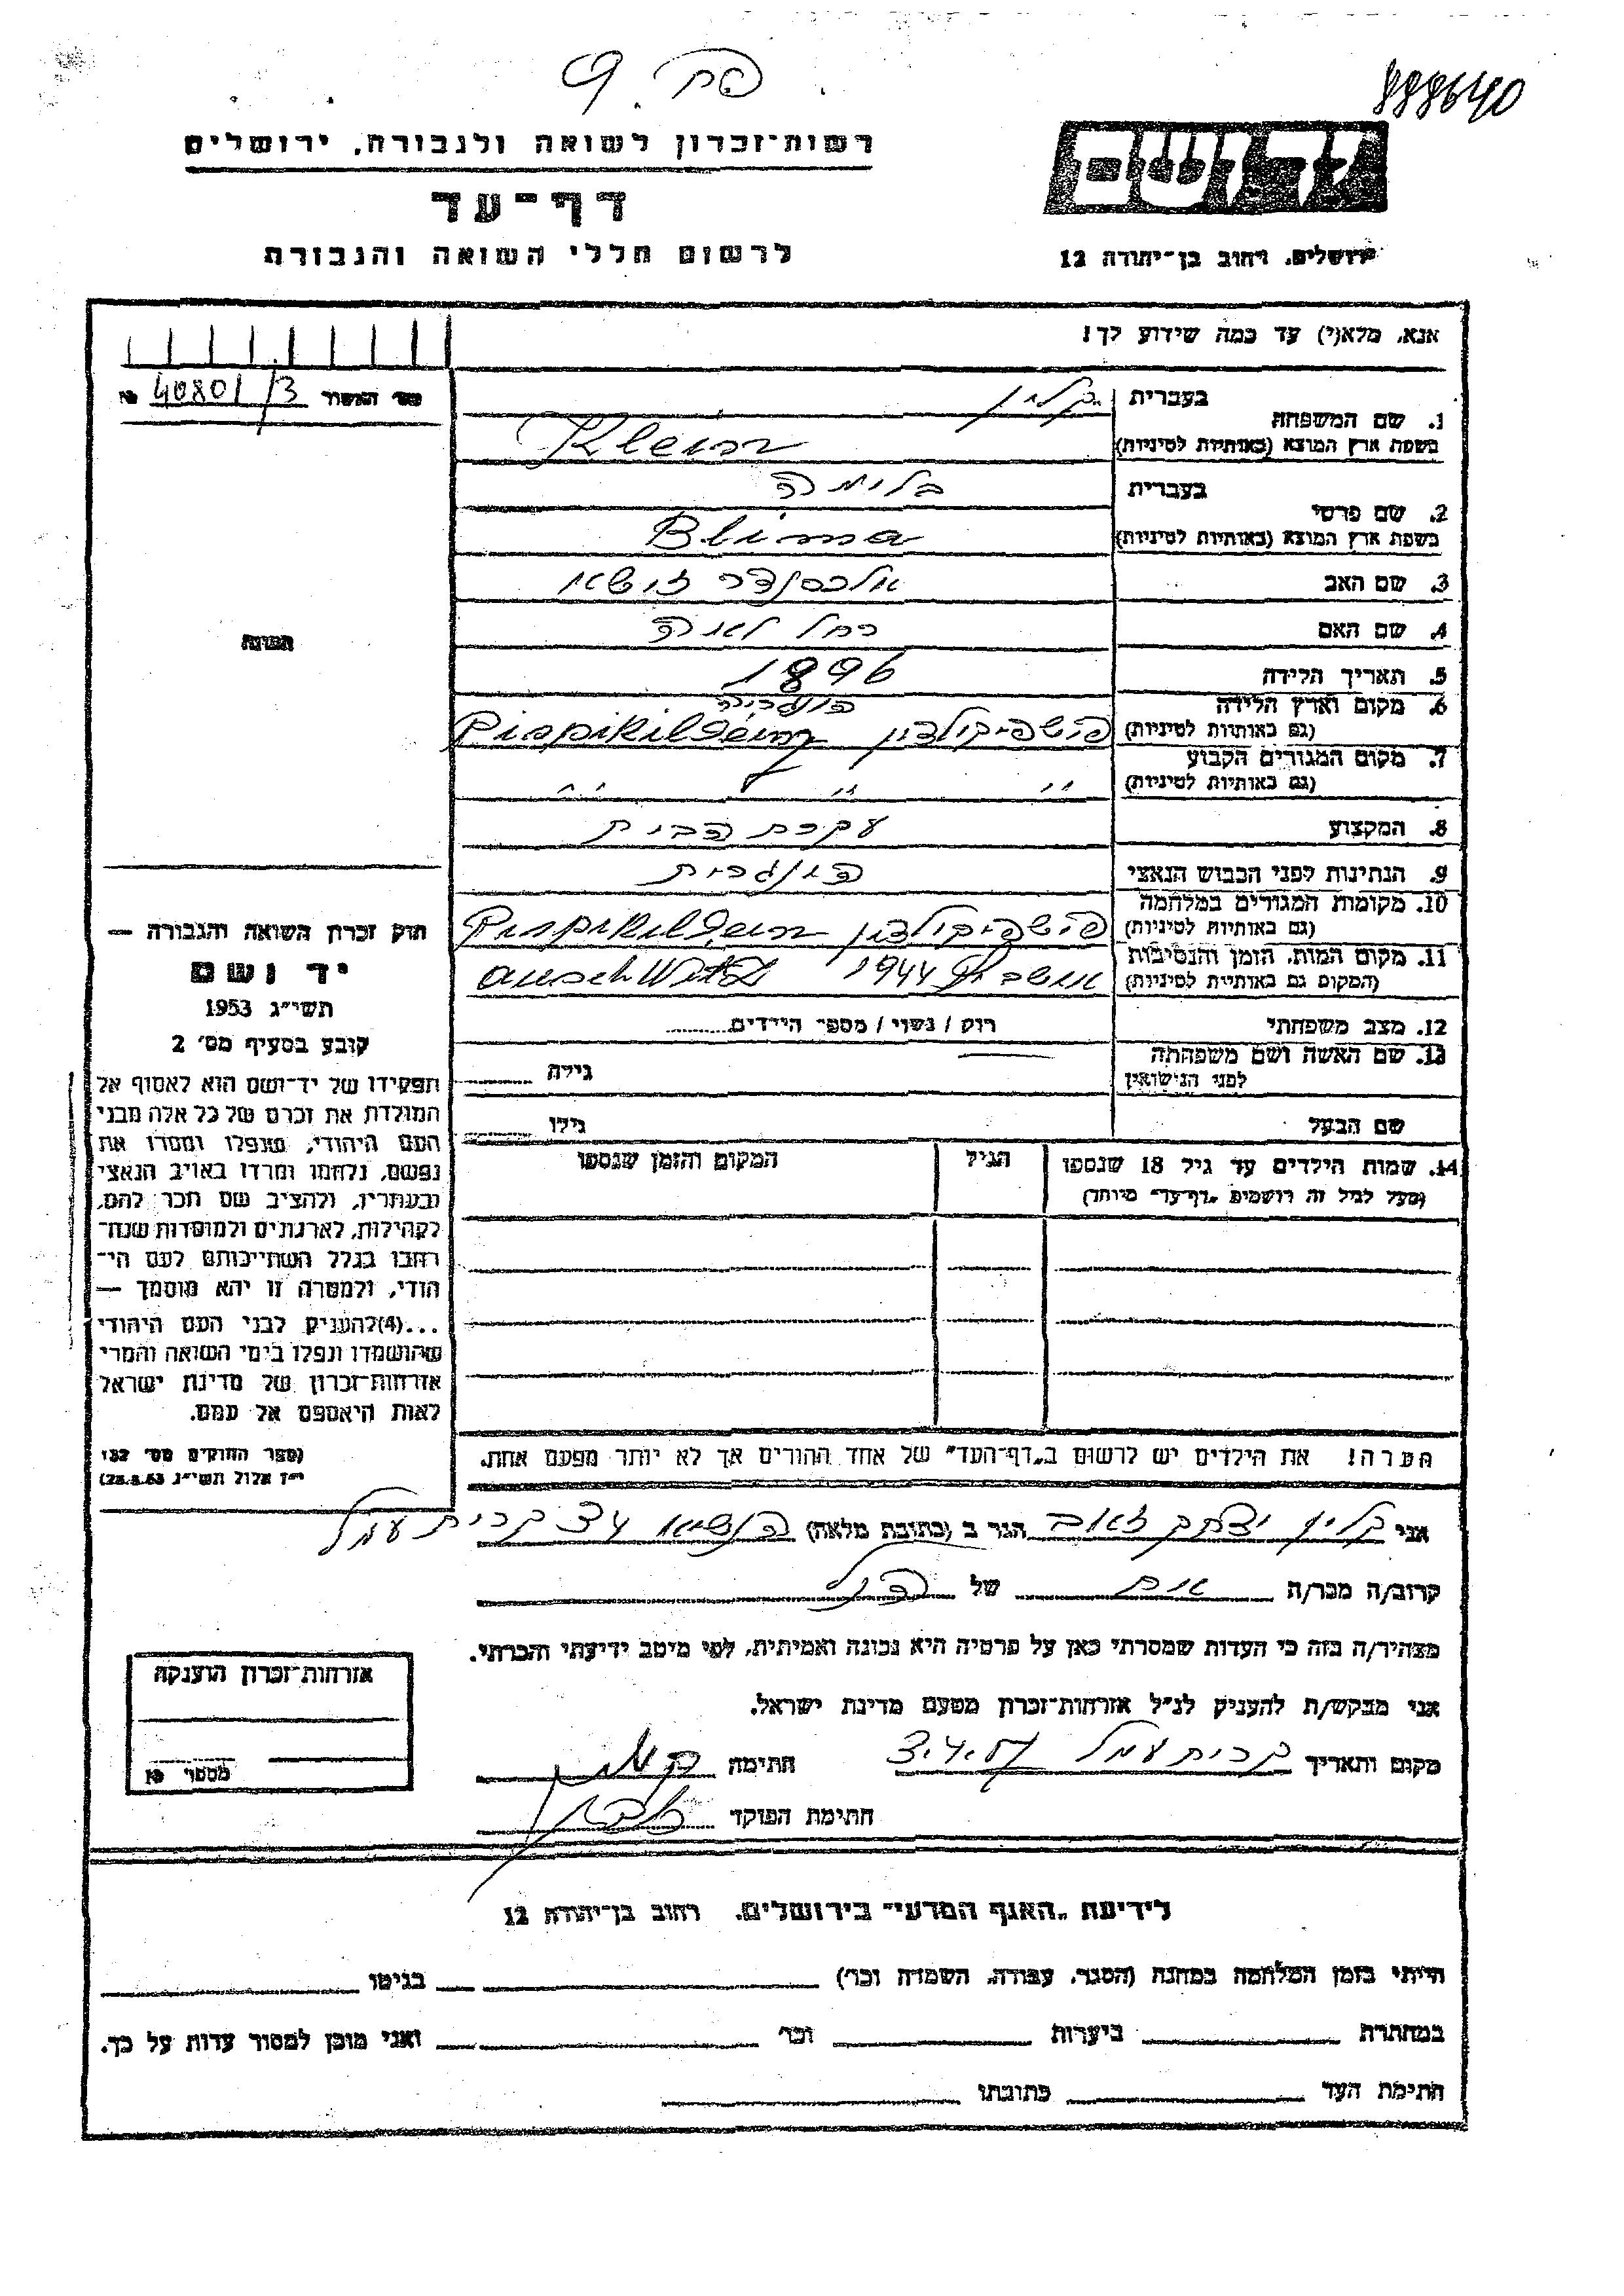 פח. 9
888640
רשות־זכרון לשואה ולגבורה, ירושלים
דף־עד
לרשום חללי השואה והגבורה
יד ושם
ירושלים, רחוב בן־יהודה 12
אנא, מלא(י) עד כמה שידוע לך!
מס׳ האשור № 40801/3
1. שם המשפחה בעברית קליין
בשפת ארץ המוצא (באותיות לטיניות) Klein
2. שם פרטי בעברית בלימה
בשפת ארץ המוצא (באותיות לטיניות) Blima
3. שם האב אלכסנדר זושא
4. שם האם רחל לאה
5. תאריך הלידה 1896
6. מקום וארץ הלידה הונגריה
(גם באותיות לטיניות) פישפיקולדין Pispikiladéiny
7. מקום המגורים הקבוע
(גם באותיות לטיניות) " " " "
8. המקצוע עקרת הבית
9. הנתינות לפני הכבוש הנאצי הונגרית
10. מקומות המגורים במלחמה
(גם באותיות לטיניות) פישפיקולדין
11. מקום המות, הזמן והנסיבות
(המקום גם באותיות לטיניות) אושביץ 1944 auschWitz
12. מצב משפחתי רוק / נשוי / מספר הילדים........
13. שם האשה ושם משפחתה
לפני הנישואין גילה
שם הבעל גילו
14. שמות הילדים עד גיל 18 שנספו הגיל המקום והזמן שנספו
(מעל לגיל זה רושמים „דף־עד" מיוחד)
הערה! את הילדים יש לרשום ב„דף־העד" של אחד ההורים אך לא יותר מפעם אחת.
תמונה
חוק זכרון השואה והגבורה —
יד ושם
תשי״ג 1953
קובע בסעיף מס׳ 2
תפקידו של יד־ושם הוא לאסוף אל
המולדת את זכרם של כל אלה מבני
העם היהודי, שנפלו ומסרו את
נפשם, נלחמו ומרדו באויב הנאצי
ובעוזריו, ולהציב שם וזכר להם,
לקהילות, לארגונים ולמוסדות שנח־
רבו בגלל השתייכותם לעם הי־
הודי, ולמטרה זו יהא מוסמך —
...(4)להעניק לבני העם היהודי
שהושמדו ונפלו בימי השואה והמרי
אזרחות־זכרון של מדינת ישראל
לאות היאספם אל עמם.
(ספר החוקים מס׳ 132
י״ז אלול תשי״ג 28.8.53)
אני קליין יצחק זאב הגר ב (כתובת מלאה) הנשיא קרית עמל
קרוב/ה מכר/ה אם של הנ״ל
מצהיר/ה בזה כי העדות שמסרתי כאן על פרטיה היא נכונה ואמיתית, לפי מיטב ידיעתי והכרתי.
אני מבקש/ת להעניק לנ״ל אזרחות־זכרון מטעם מדינת ישראל.
מקום ותאריך קרית עמל 3.4.57 חתימה
חתימת הפוקד
אזרחות־זכרון הוענקה
מספר №
לידיעת „האגף המדעי" בירושלים, רחוב בן־יהודה 12
הייתי בזמן המלחמה במחנה (הסגר, עבודה, השמדה וכו׳) בגיטו
במחתרת ביערות וכו׳ ואני מוכן למסור עדות על כך.
חתימת העד כתובתו